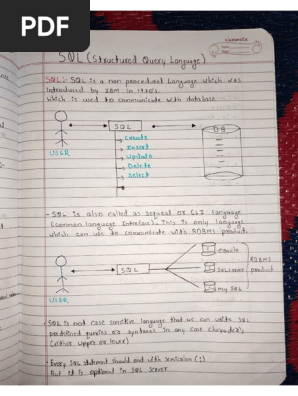 PDF
classmate
SQL (Structured Query Language)
SQL :- SQL is a non procedural Language which was
introduced by IBM in 1970's.
which is used to communicate with database
SQL
DB
USER
Create
Insert
Update
Delete
Select
- SQL is also called as sequal or CLI language
(Common language Interface). This is only language
which can use to communicate with RDBMS products.
oracle
SQL
SQL server
RDBMS
product
my SQL
USER
SQL is not case sensitive language that we can write SQL
predefined queries or syntaxes in any case characters,
(either upper or lower)
Every SQL statement should end with semicolon (;)
But it is optional in SQL server